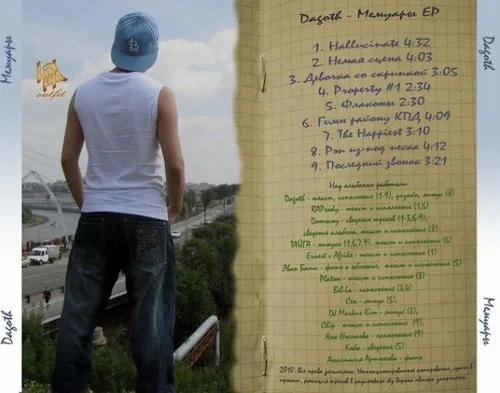 Мемуары
Dagoth
outfit
Dagoth - Мемуары EP
1. Hallucinate 4:32
2. Немая сцена 4:03
3. Девочка со скрипкой 3:05
4. Property #1 2:34
5. Флаконы 2:30
6. Гимн району КПД 4:09
7. The Happiest 3:10
8. Рэп из-под песка 4:12
9. Последний звонок 3:21
Над альбомом работали:
Dagoth - текст, исполнение (1-9), дизайн, минус (8)
RAPsody - текст и исполнение (1,5)
сведение треков (1-3,6-9),
сведение альбома, текст и исполнение (8)
ТАЙГА - минуса (1,6,7,9), текст и исполнение (6)
Ernest v Afrike - текст и исполнение (1)
фото к обложке, текст и исполнение (5)
Platon - текст и исполнение (3)
исполнение (3,4)
минус (5),
DJ Markus Kim - минус (3),
Chip - текст и исполнение (9),
Яна Носикова - исполнение (9)
Кода - сведение (5)
Анастасия Артюхова - фото
2010. Все права защищены.
Dagoth
Мемуары